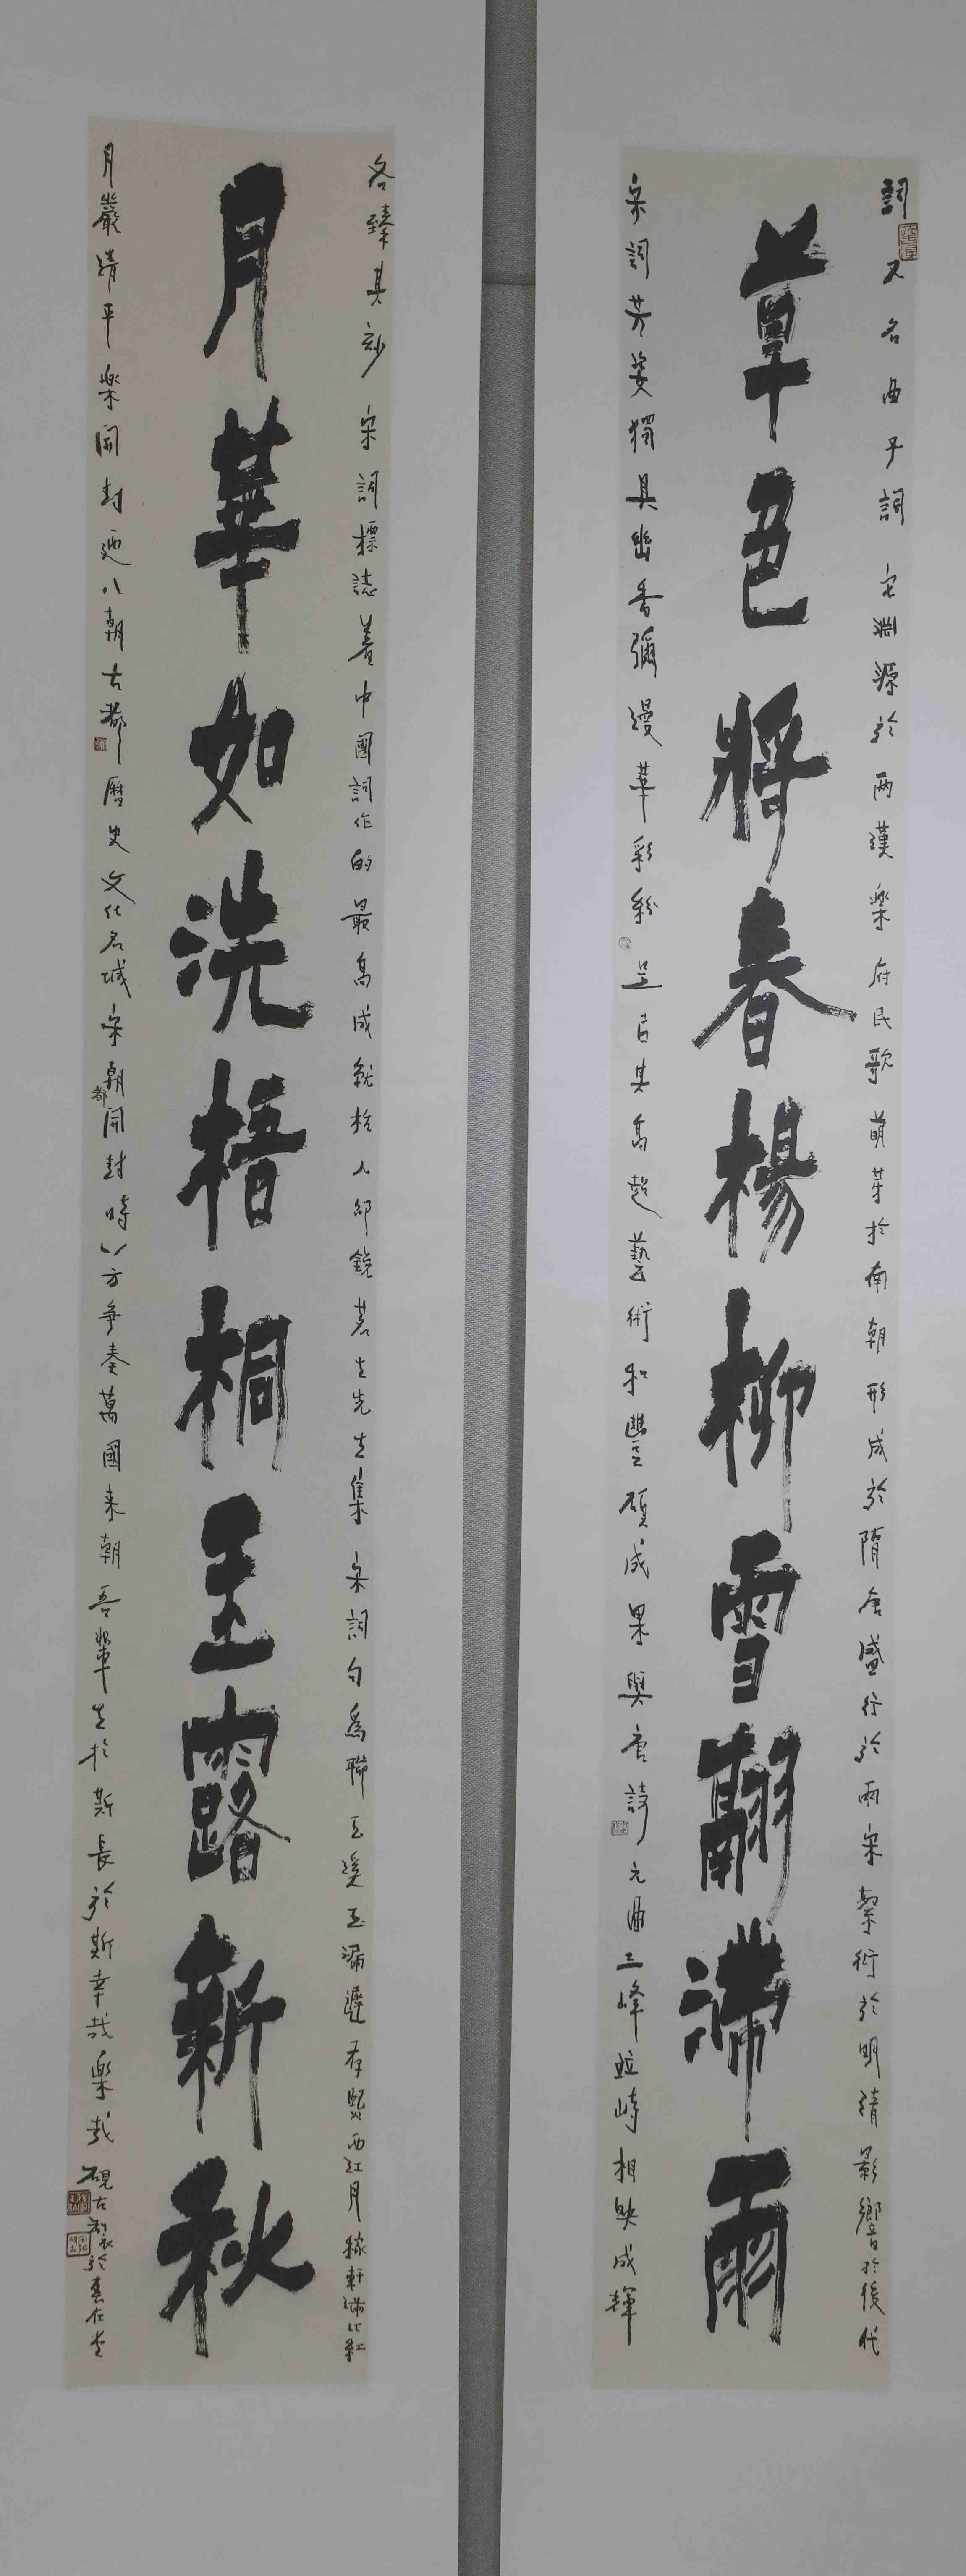 詞又名曲子詞它淵源於两漢樂府民歌萌芽於南朝形成於隋唐盛行於兩宋繁衍於明清影響於後代
草色將春楊柳雪翻滿雨
宋詞芳姿獨具幽香彌漫華彩紛呈以其高超藝術和豐碩成果與唐詩元曲三峰並峙相映成輝
各臻其妙宋詞標誌着中國詞作的最高成就杭人邵鏡若生先生集宋詞句為聯玉溪玉漏遲存熙西江月稼軒滿江紅
月華如洗梧桐玉露新秋
月嚴清平樂開封迺八朝古都歷史文化名城宋朝都開封時八方爭奏萬國来朝吾輩生於斯長於斯幸哉樂哉硯古製於春在堂